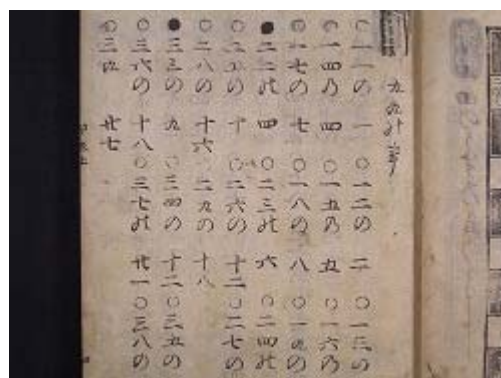 九九
○一一の 一 ○一二の 二 ○一三の
○一四乃 四 ○一五乃 五 ○一六乃
○一七の 七 ○一八の 八 ○一九の
●二二の 四 ○二三の 六 ○二四の
○二五の 十 ○二六の 十二 ○二七の
○二八の 十六 ○二九の 十八
●三三の 九 ○三四の 十二 ○三五の
○三六の 十八 ○三七の 廿一 ○三八の
○三九 廿七